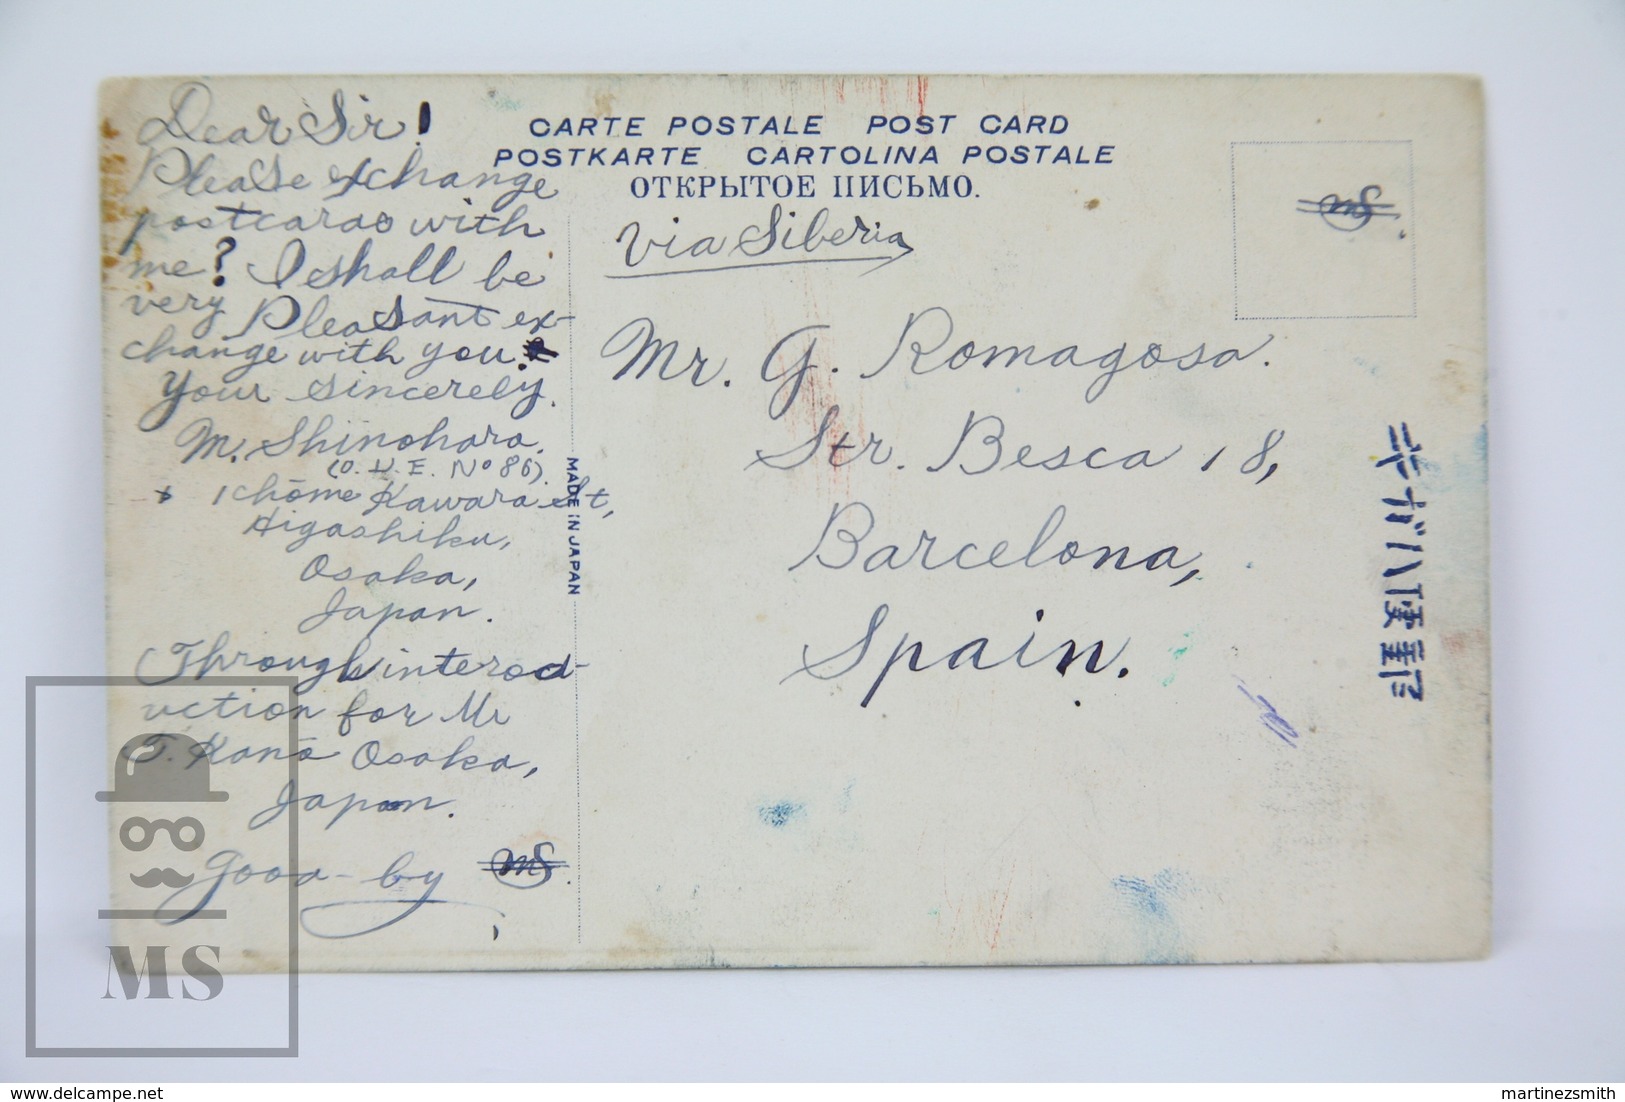 Dear Sir!
Please exchange
postcards with
me? I shall be
very pleasant ex-
change with you.
Your sincerely.
M. Shinohara.
(O.U.E. No 86).
1 chōme Kawara St,
Higashiku,
Osaka,
Japan.
Through interod-
uction for Mr
T. Kano Osaka,
Japan.
good-by MS.
CARTE POSTALE POST CARD
POSTKARTE CARTOLINA POSTALE
ОТКРЫТОЕ ПИСЬМО.
via Siberia
MS
Mr. G. Romagosa.
Str. Besca 18,
Barcelona,
Spain.
MADE IN JAPAN
MS
delcampe.net
martinezsmith